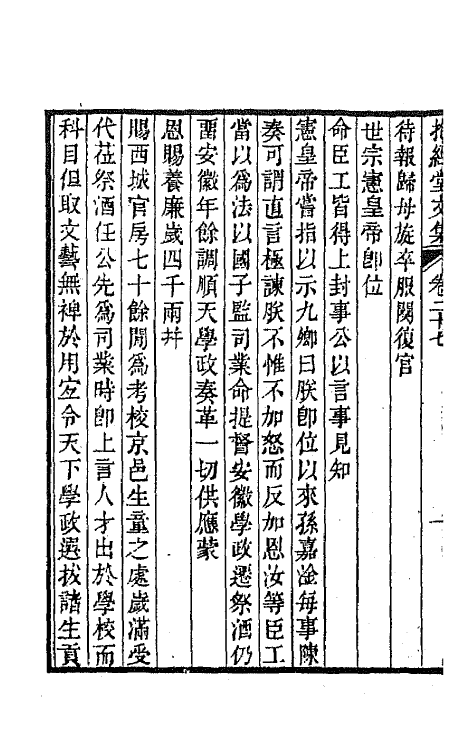 抱經堂文集 卷二十七 一
待報歸母旋卒服闋復官
世宗憲皇帝卽位
命臣工皆得上封事公以言事見知
憲皇帝嘗指以示九卿曰朕卽位以來孫嘉淦每事陳
奏可謂直言極諫朕不惟不加怒而反加恩汝等臣工
當以爲法以國子監司業命提督安徽學政遷祭酒仍
畱安徽年餘調順天學政奏革一切供應蒙
恩賜養廉歲四千兩幷
賜西城官房七十餘閒爲考校京邑生童之處歲滿受
代莅祭酒任公先爲司業時卽上言人才出於學校而
科目但取文藝無裨於用宐令天下學政選拔諸生貢